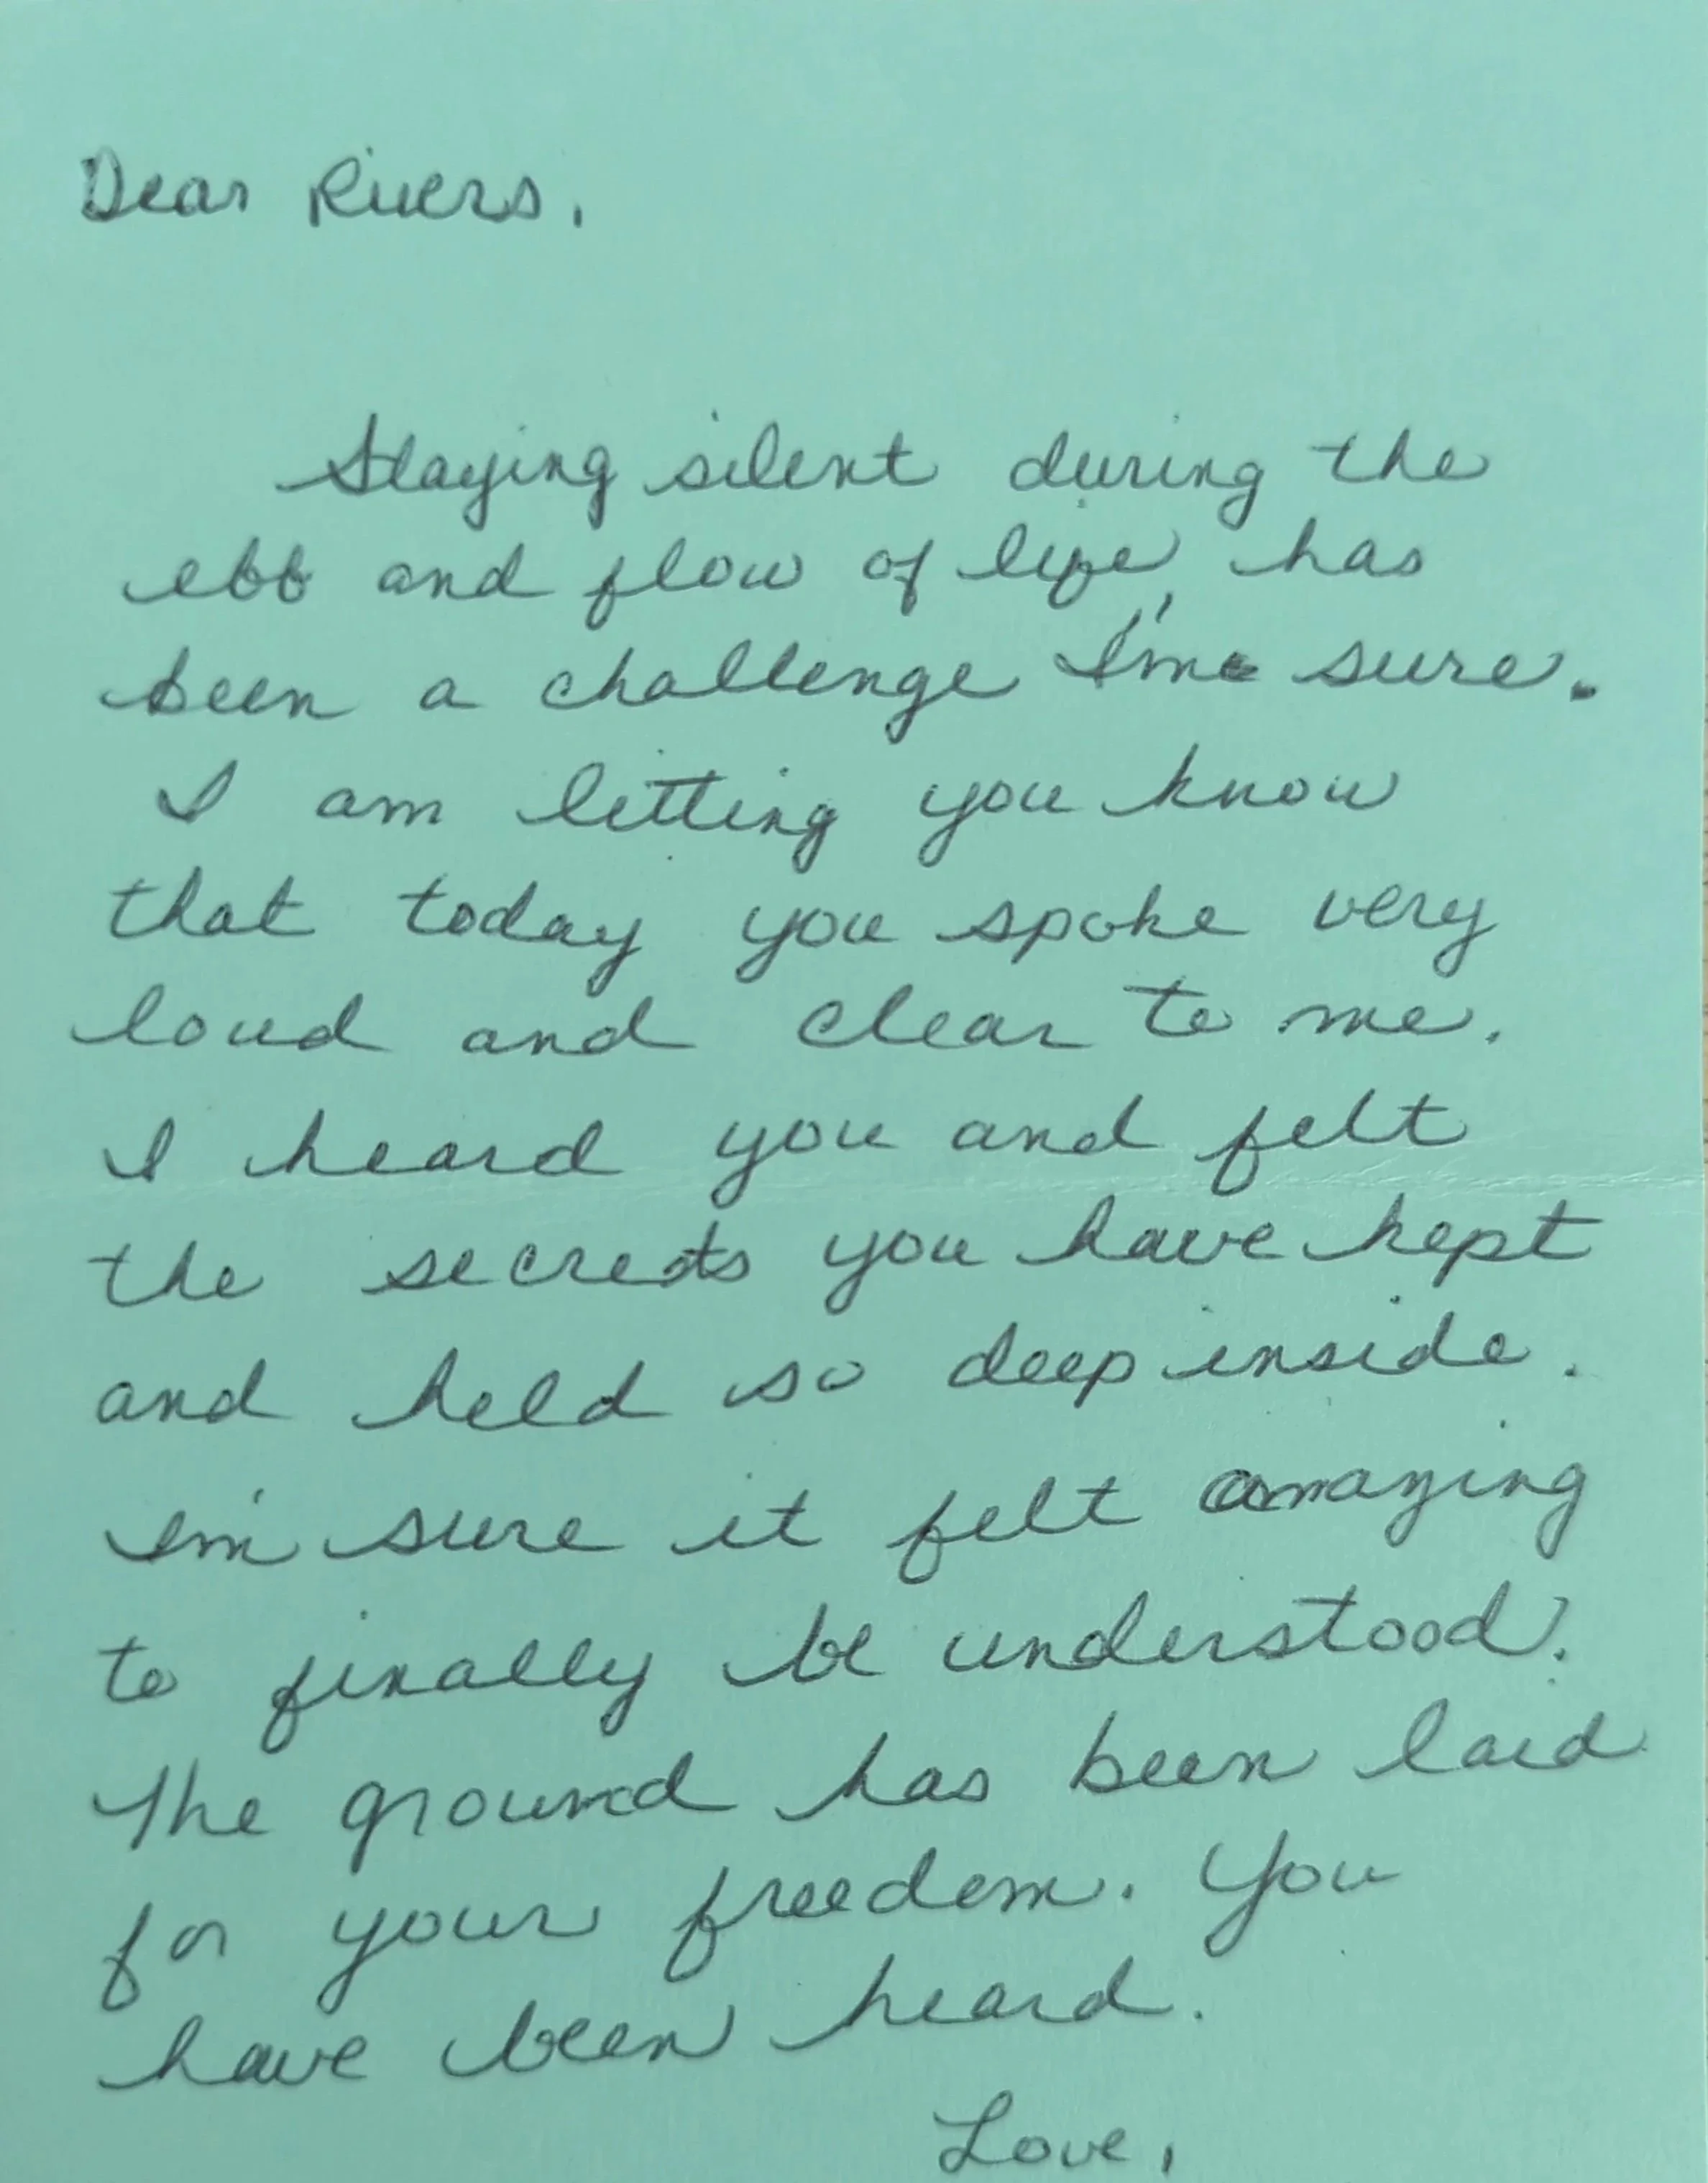 Dear Rivers,
Staying silent during the
ebb and flow of life, has
been a challenge I'm sure.
I am letting you know
that today you spoke very
loud and clear to me.
I heard you and felt
the secrets you have kept
and held so deep inside.
I'm sure it felt amazing
to finally be understood.
The ground has been laid
for your freedom. You
have been heard.
Love,